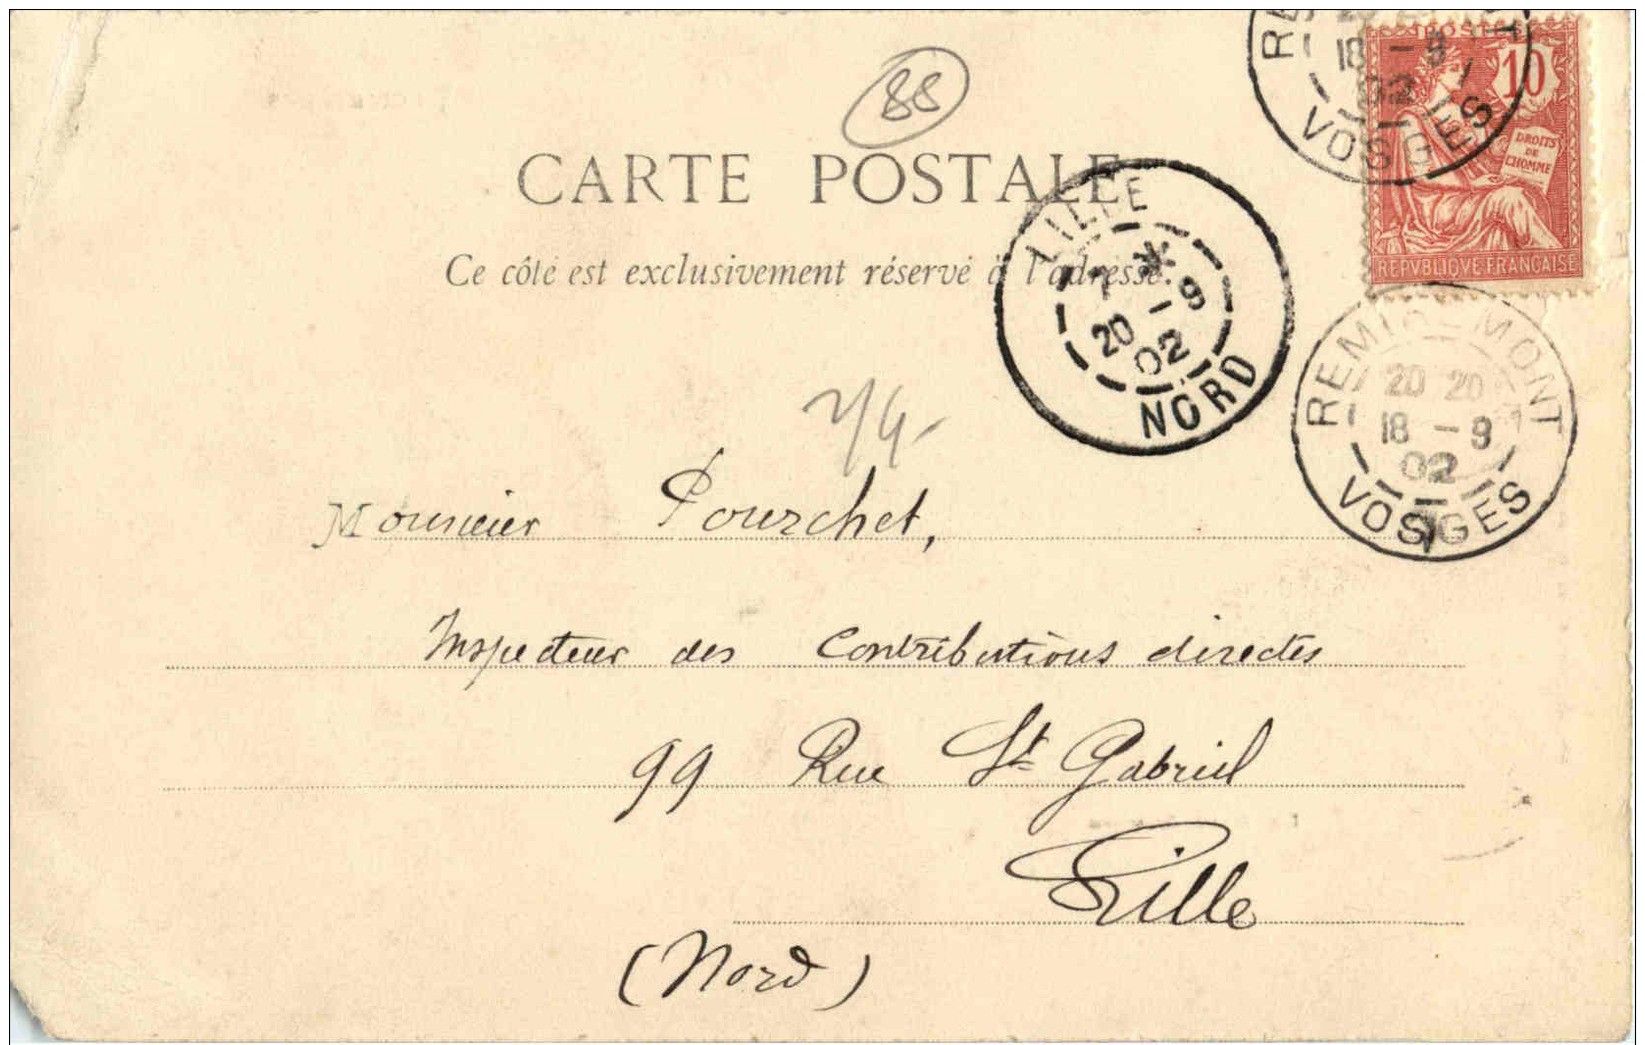 88
CARTE POSTALE
Ce côté est exclusivement réservé à l'adresse.
POSTES
10
DROITS
DE
L'HOMME
REPVBLIQVE FRANÇAISE
18 - 9
02
VOSGES
LILLE
7 *
20 - 9
02
NORD
REMIREMONT
20 20
18 - 9
02
VOSGES
Monsieur Pourchet,
Inspecteur des Contributions directes
99 Rue St Gabriel
Lille
(Nord)